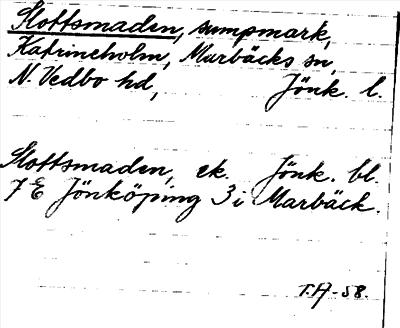 Slottsmaden, sumpmark,
Katrineholm, Marbäcks sn,
N Vedbo hd, Jönk. l.
Slottsmaden, ek. Jönk. bl.
7 E Jönköping 3 i Marbäck.
T.A-58.